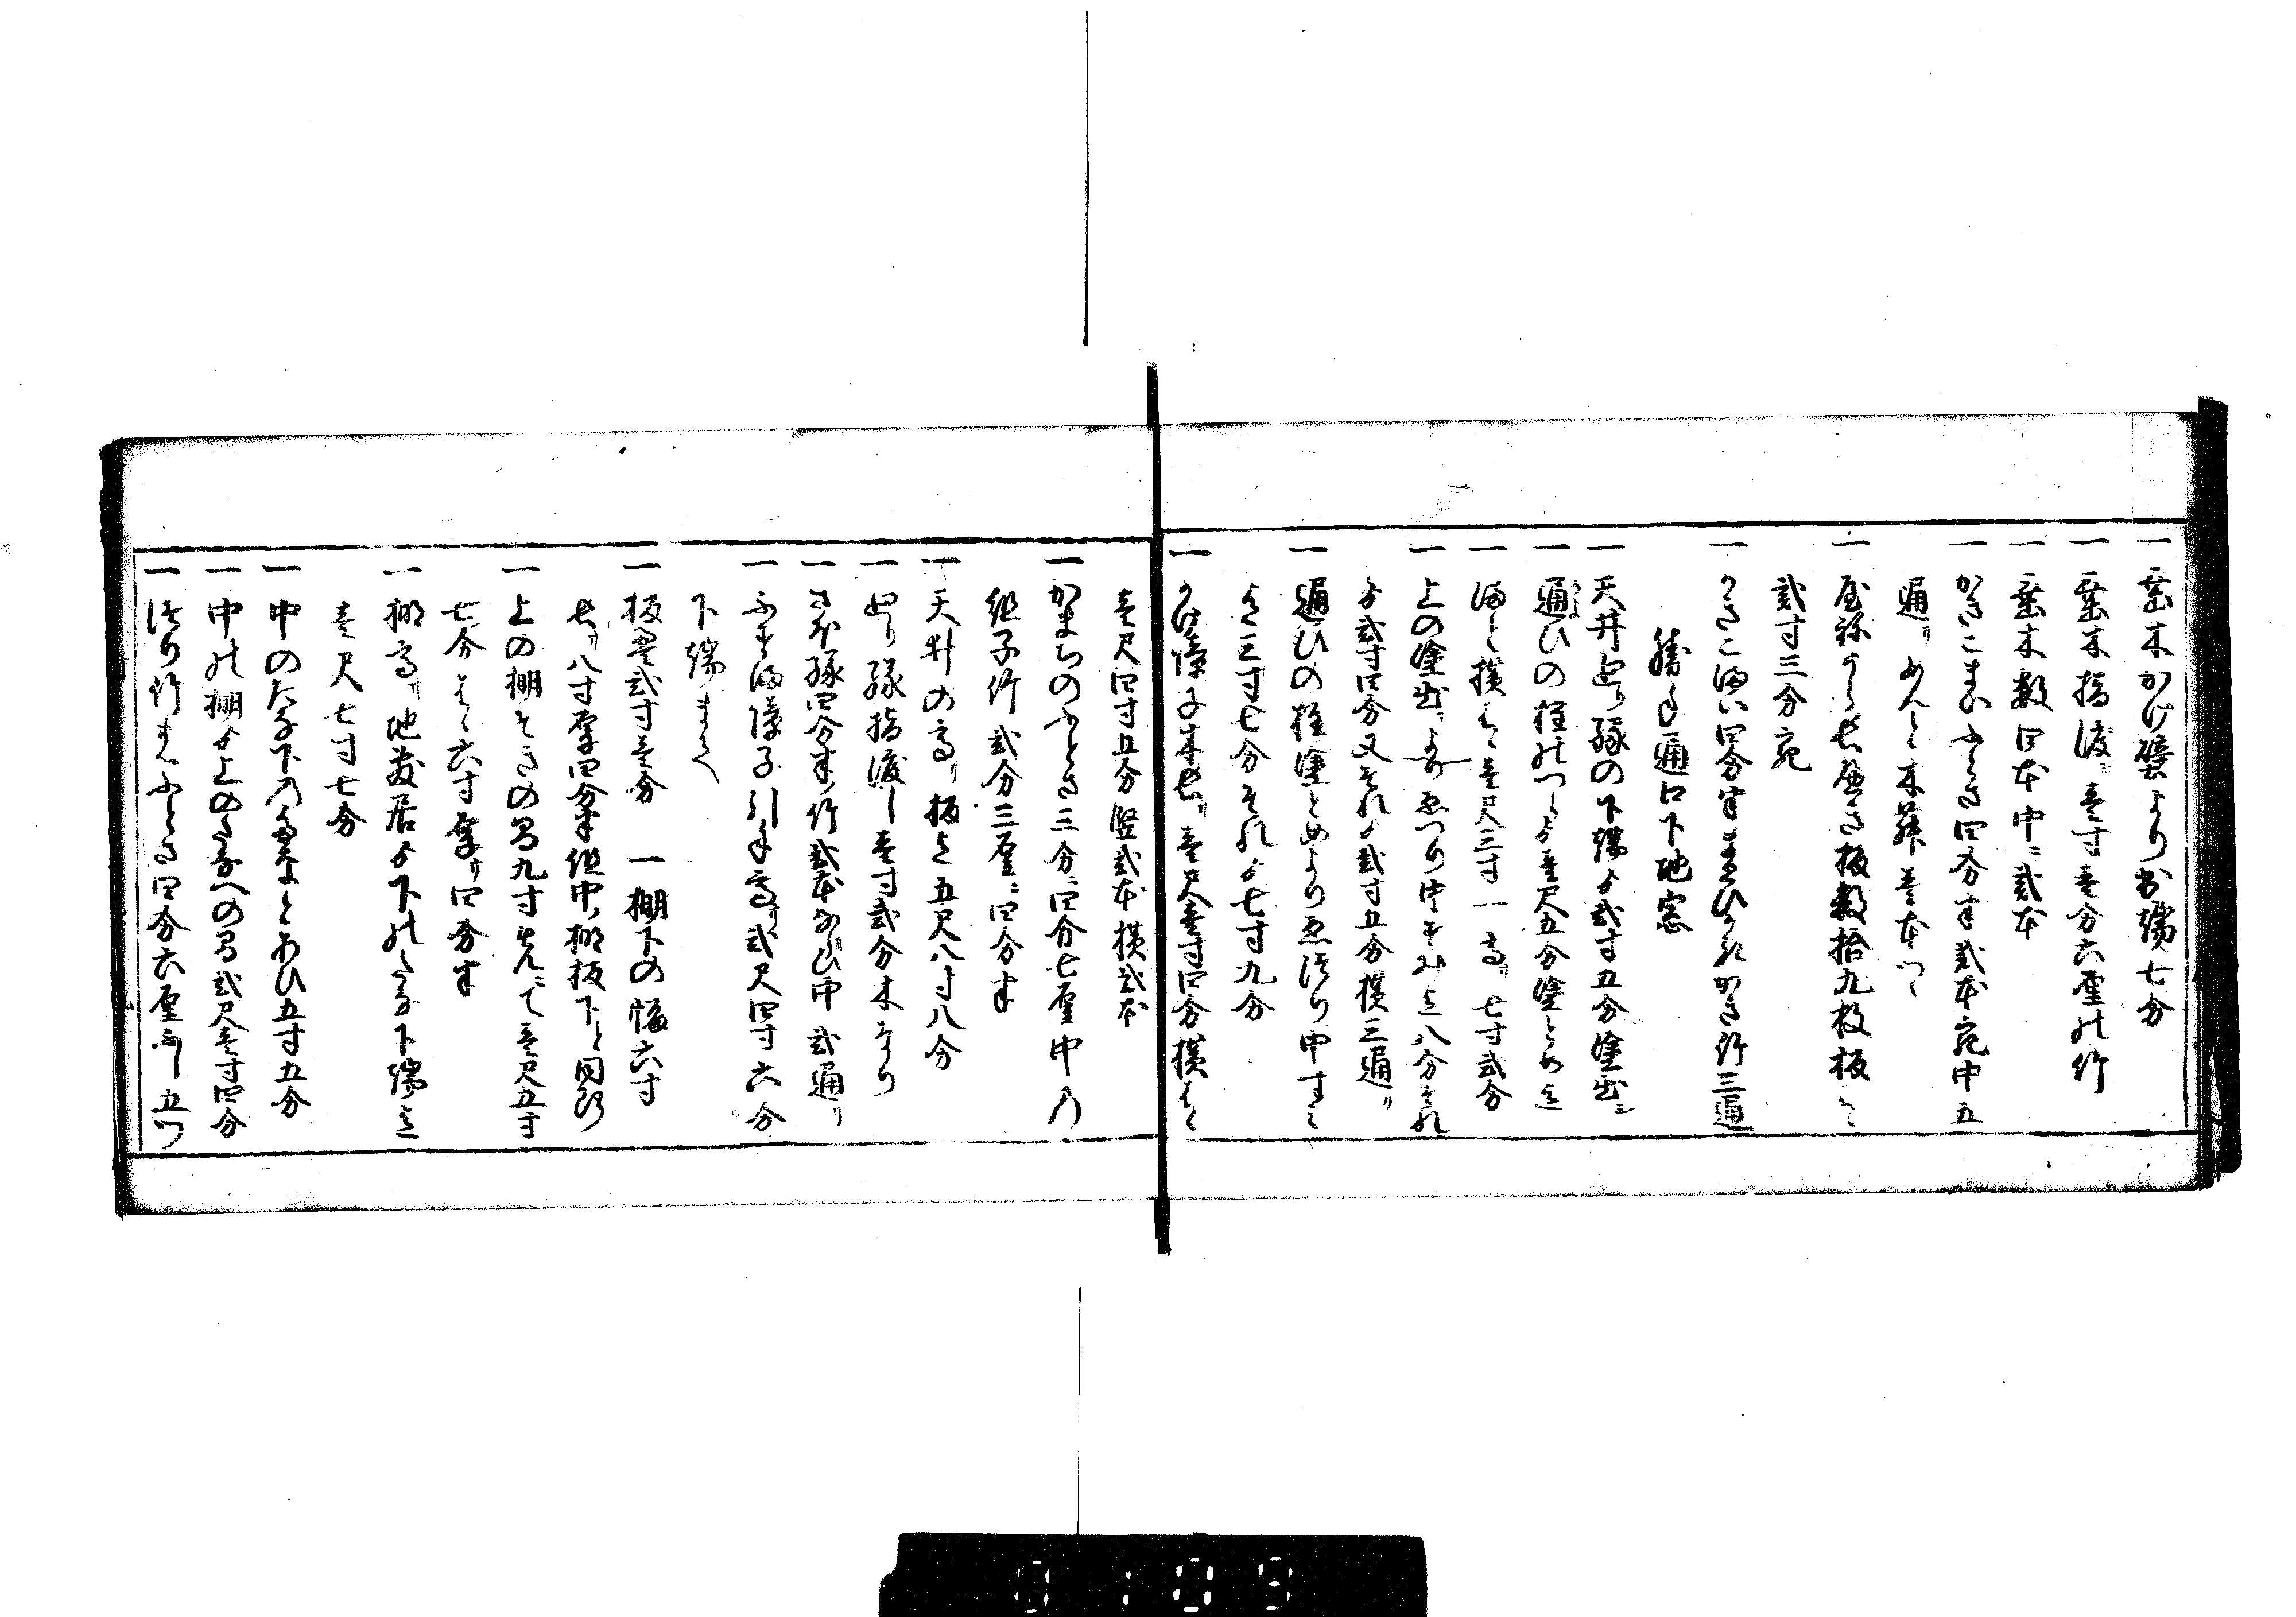 一 垂木かけ壁より出端七分
一 垂木指渡ニ壱寸壱分六厘の竹
一 垂木数四本中ニ弐本
一 かきこまひふとさ四分半弐本宛中五
通リめんと木藤壱本つゝ
一 屋祢うら長へき板数拾九枚板はゝ
弐寸三分宛
一 かきこまい四分半まひかき竹三通
勝手通口下地窓
一 天井廻リ縁の下端ゟ弐寸五分塗出シ
一 通ひの柱のつらゟ壱尺五分塗とめ迄
一 まと横はゝ壱尺三寸一高サ七寸弐分
一 上の塗出ニよりゑつり中すみ迄八分それ
ゟ弐寸四分又それゟ弐寸五分横三通リ
一 通ひの柱塗とめよりゑつり中すミ
迄三寸七分それゟ七寸九分
一 かけ障子木長サ壱尺壱寸四分横はゝ
壱尺四寸五分竪弐本横弐本
一 かまちのふとさ三分ニ四分七厘中の
組子竹弐分三厘ニ四分半
一 天井の高サ板迄五尺八寸八分
一 廻リ縁指渡し壱寸弐分木なり
一 さほ縁四分半竹弐本ならひ中弐通リ
一 ふすま障子引手高サ弐尺四寸六分
下端まて
一 板畳弐寸壱分 一棚下の幅六寸
長サ八寸厚四分半組中ノ棚板下と同断
一 上の棚そきの間九寸先ニて壱尺五寸
七分はゝ六寸厚サ四分半
一 棚高サ地敷居ゟ下のたな下端迄
壱尺七寸七分
一 中のたな下のたなとあひ五寸五分
一 中の棚ゟ上のたなへの間弐尺壱寸四分
一 つり竹まへふとさ四分六厘ふし五つ